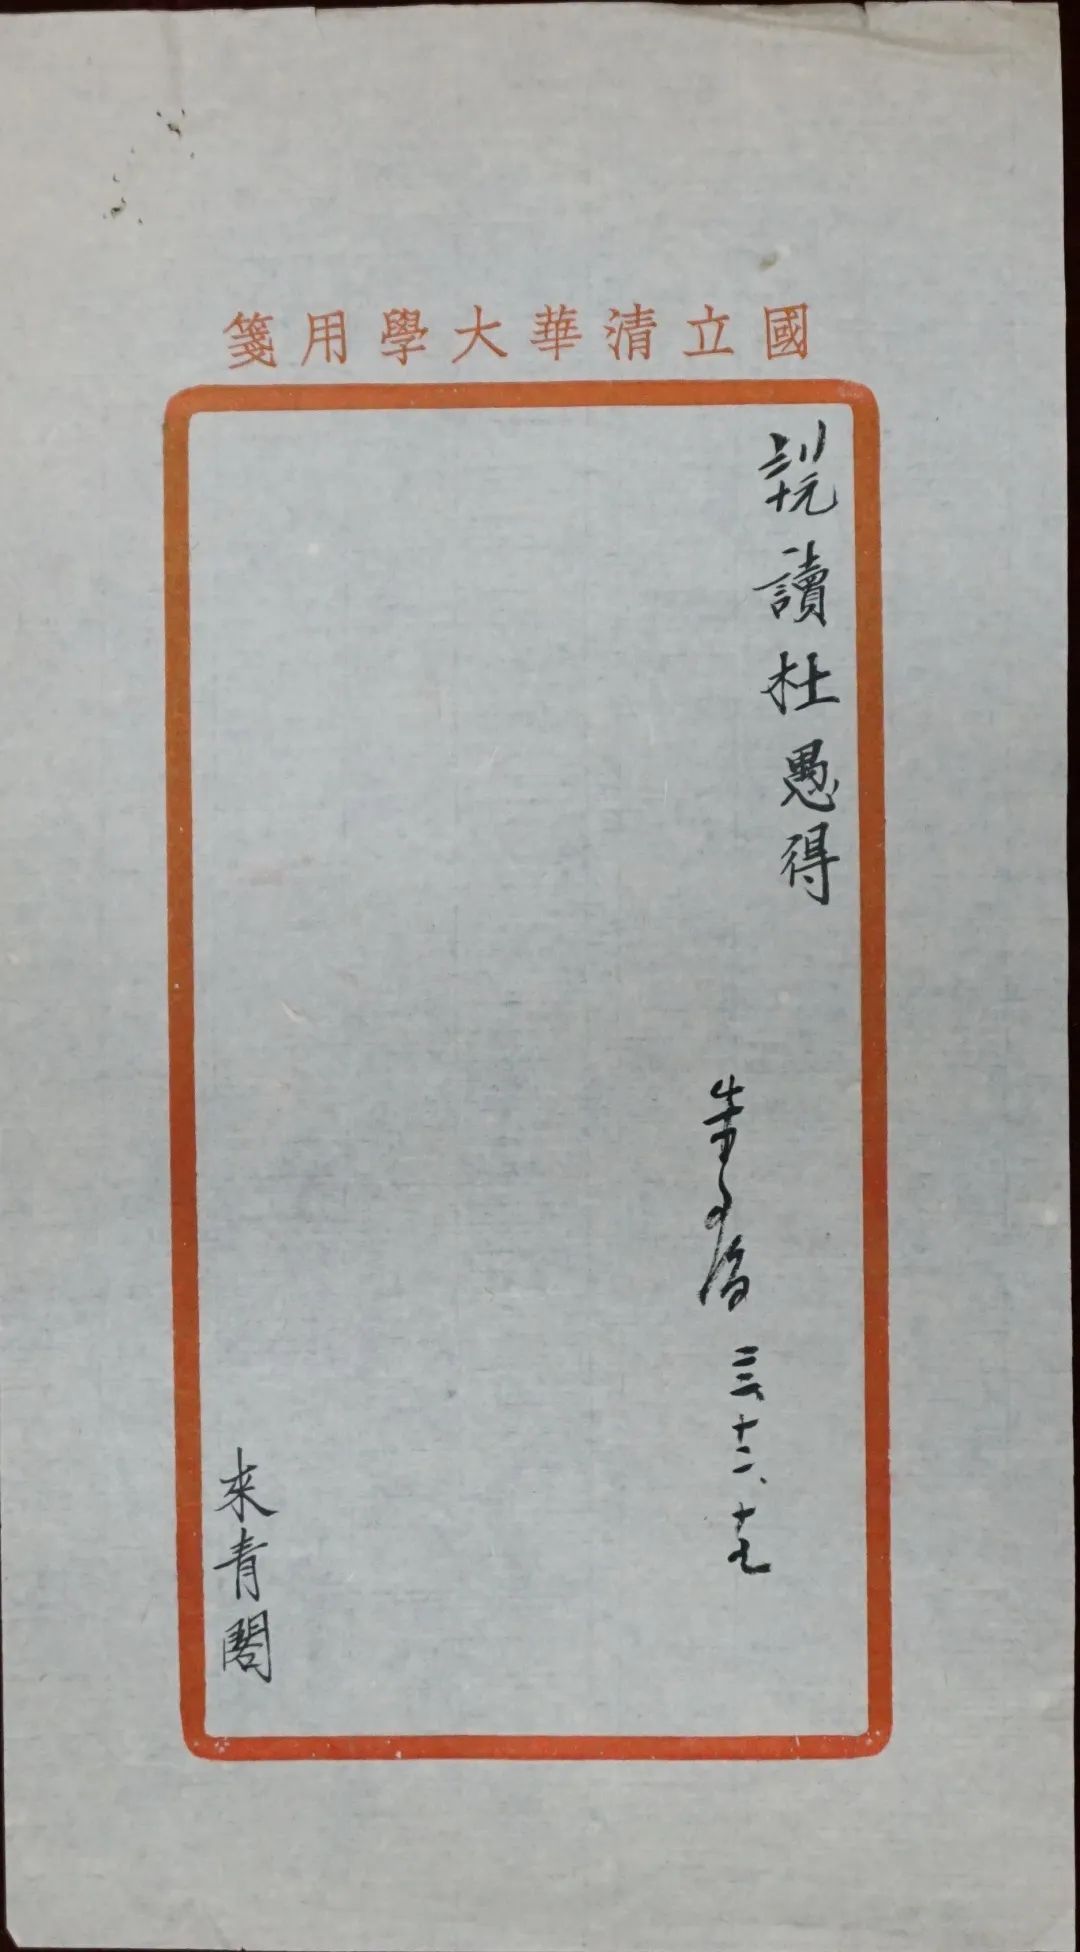 國立清華大學用箋
讀杜愚得
朱自清 三六、十二、十七
來青閣